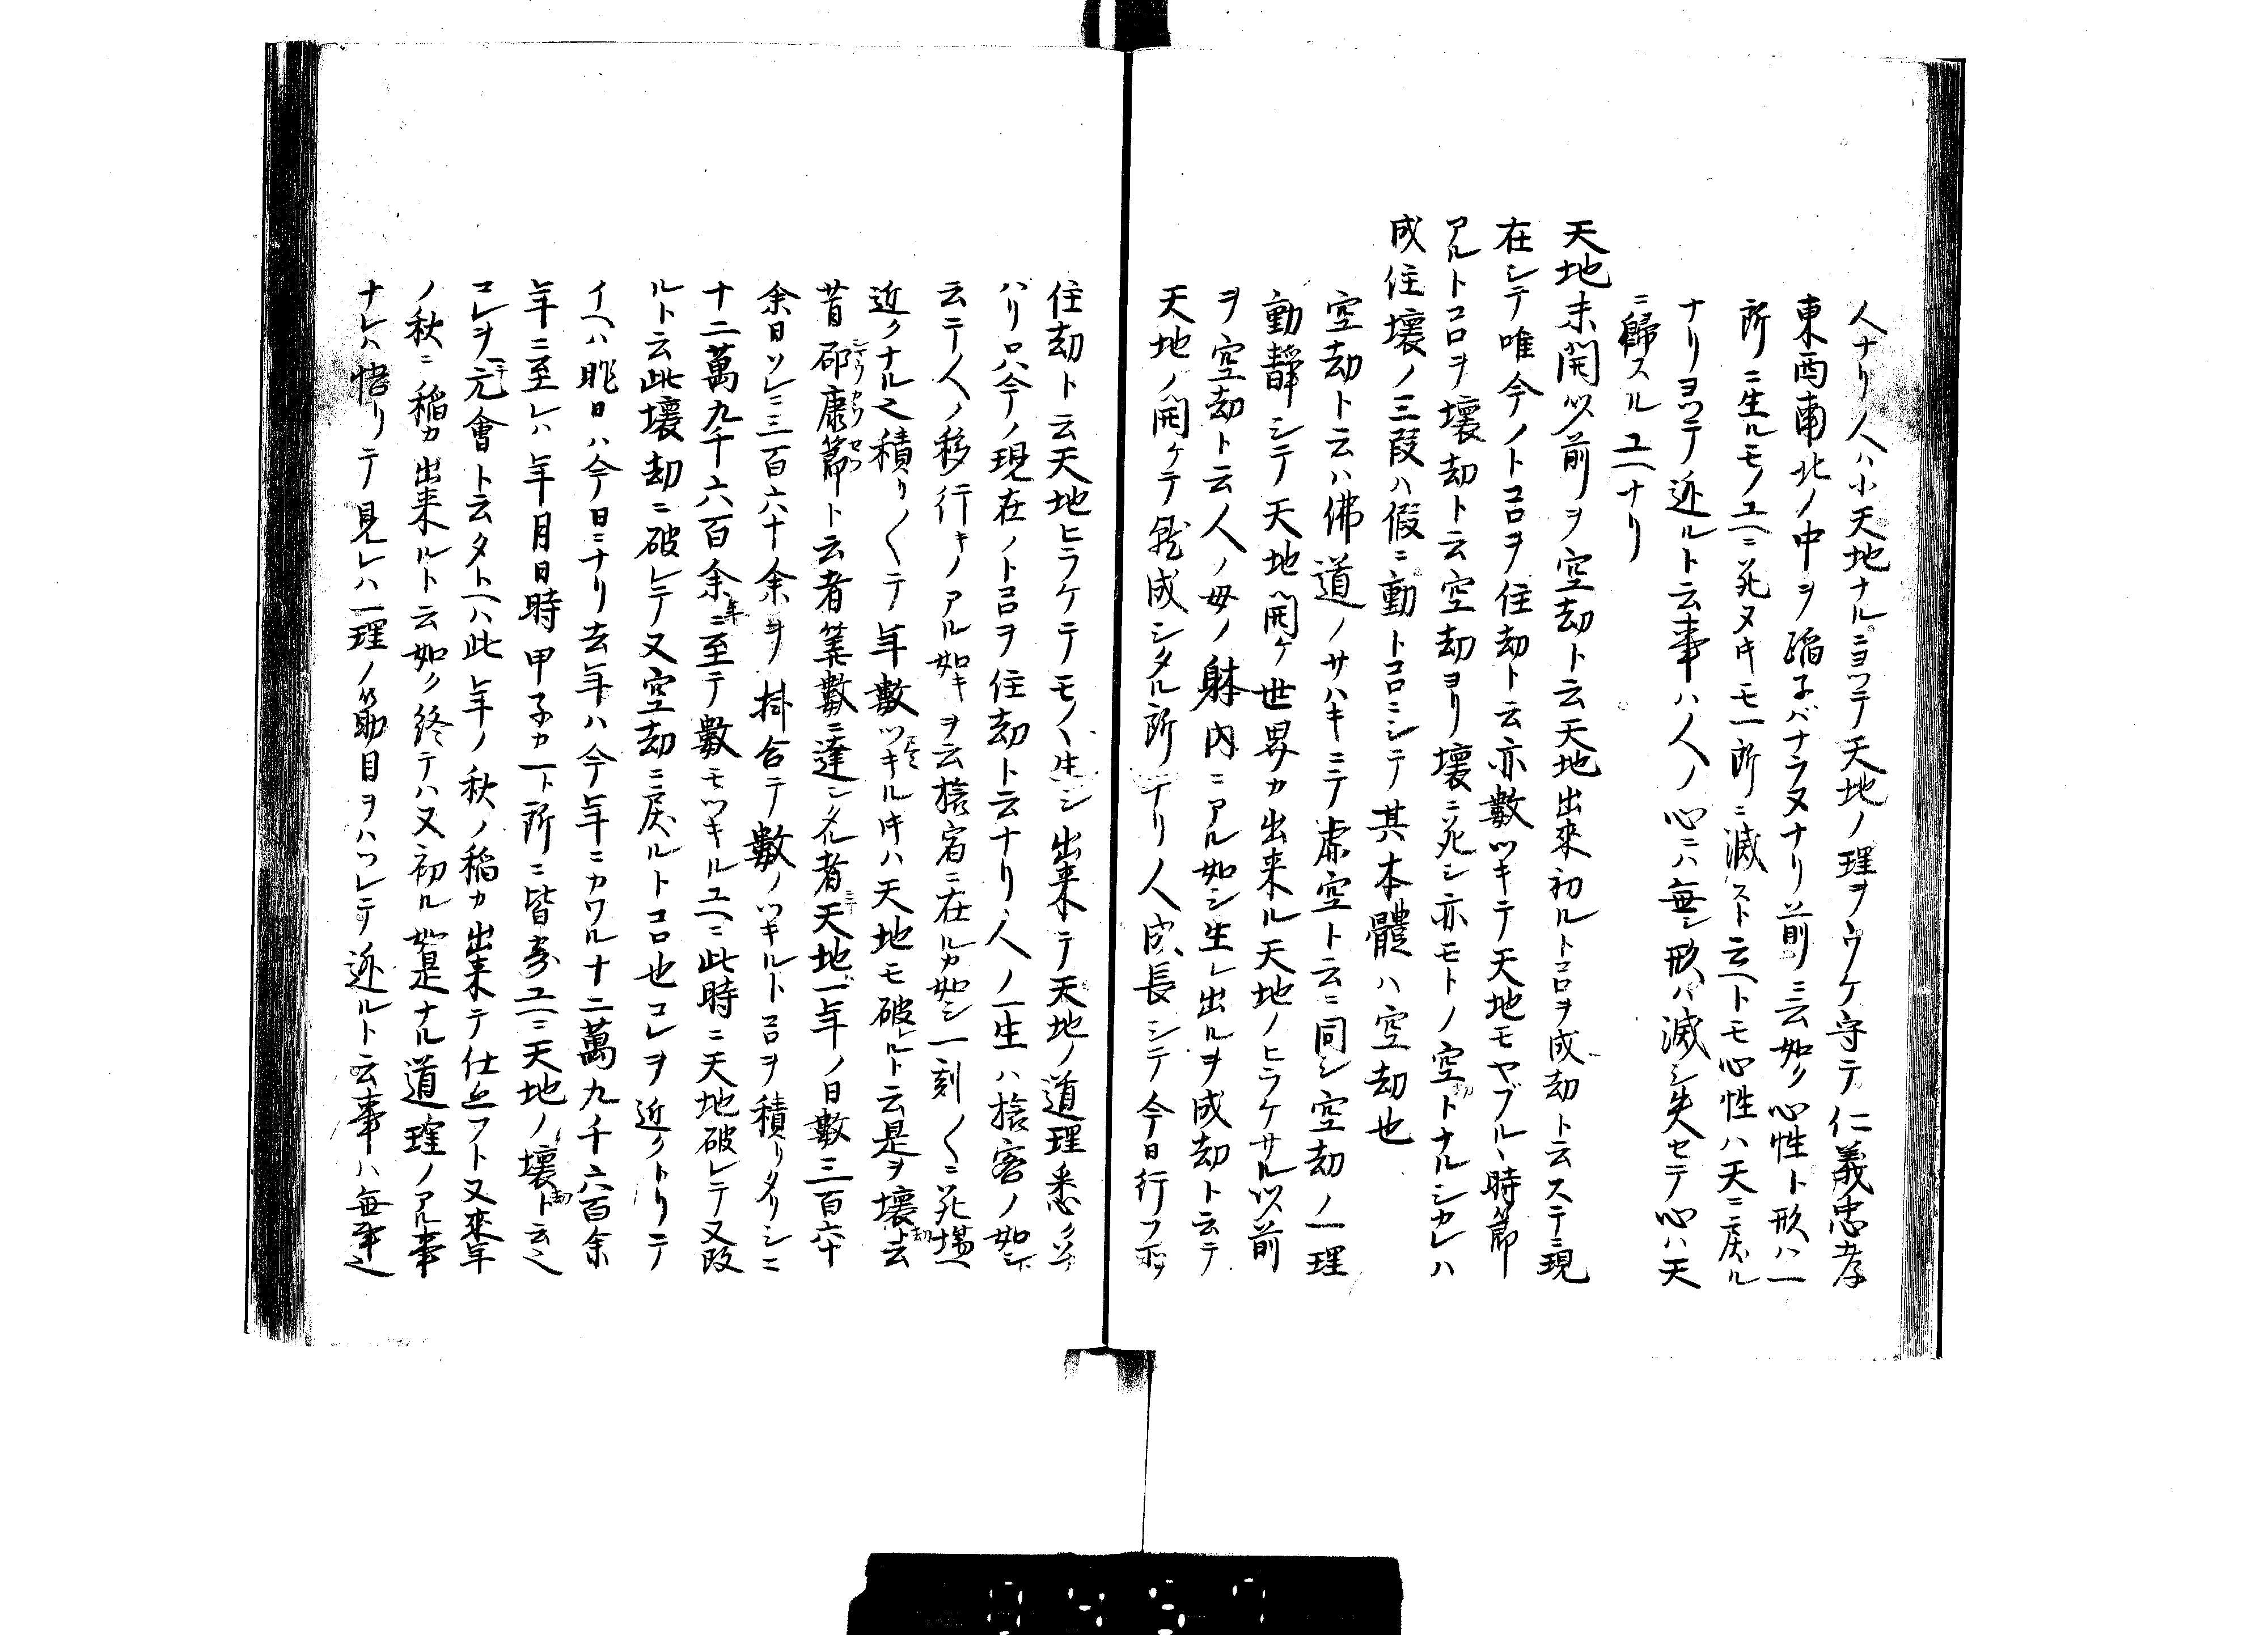 人ナリ人ハ小天地ナルニヨツテ天地ノ理ヲウケ守テ仁義忠孝
東西南北ノ中ヲ踏子バナラヌナリ前ニ云如ク心性ト形ハ一
所ニ生ルモノユヘニ死ヌルキモ一所ニ滅スト云ヘトモ心性ハ天ニ戻ル
ナリヨツテ迯ルト云事ハ人ノ心ニハ無シ形ハ滅シ失セテ心ハ天
ニ歸スルユヘナリ
天地未開以前ヲ空劫ト云天地出來初ルトコロヲ成劫ト云ステニ現
在シテ唯今ノトコロヲ住劫ト云亦數ツキテ天地モヤブルヽ時節
アルトコロヲ壊劫ト云空劫ヨリ壊ニ死シ亦モトノ空劫トナルシカレハ
成住壊ノ三段ハ假ニ動トコロニシテ其本體ハ空劫也
空劫ト云ハ佛道ノサハキニテ虚空ト云ニ同シ空劫ノ一理
動靜シテ天地開ケ世界カ出来ル天地ノヒラケサル以前
ヲ空劫ト云人ノ母ノ躰内ニアル如シ生レ出ルヲ成劫ト云テ
天地ノ開ケテ就成シタル所ナリ人成長シテ今日行フ所ヲ
住劫ト云天地ヒラケテモノヽ生シ出来テ天地ノ道理悉ク
ハリロハ今ノ現在ノトコロヲ住劫ト云ナリ人ノ一生ハ旅客ノ如シ
云テ人ノ移行キノアル如キヲ云旅宿ニ在ルカ如シ一刻〱ニ死場ヘ
近クナル之積リ〱テ年數ツキルキハ天地モ破ルト云是ヲ壊劫ト云
昔邵康節ト云者筭數ニ達シタル者天地一年ノ日數三百六十
余日ソレニ三百六十余ヲ掛合テ數ノツキルトコロヲ積リタリシニ
十二萬九千六百余年ニ至テ數モツキルユヘニ此時ニ天地破レテ又改
ルト云此壊劫ニ破レテ又空劫ニ戻ルトコロ也コレヲ近クトリテ
イヘハ昨日ハ今日ニナリ去年ハ今年ニカワル十二萬九千六百余
年ニ至レハ年月日時甲子カ一ト所ニ皆寄ユヘニ天地ノ壊劫ト云之
コレヲ一元會ト云タトヘハ此年ノ秋ノ稲カ出来テ仕廻フト又來年
ノ秋ニ稲カ出来ルト云如ク終テハ又初ル如是ナル道理ノアル事
ナレハ悟リテ見レハ一理ノ筋目ヲハツレテ迯ルト云事ハ無事之